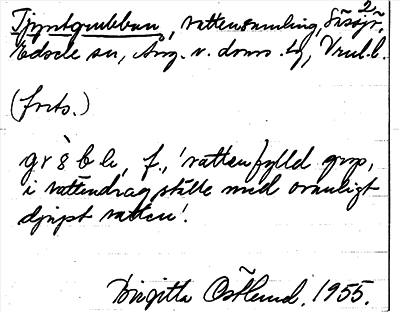 2
Tjyntgrubban, vattensamling,
Edsele sn, Ång. v. doms.
(forts.)
f., 'vattenfylld grop,
i vattendrag ställe med ovanligt
djupt vatten'.
Birgitta Östlund, 1955.